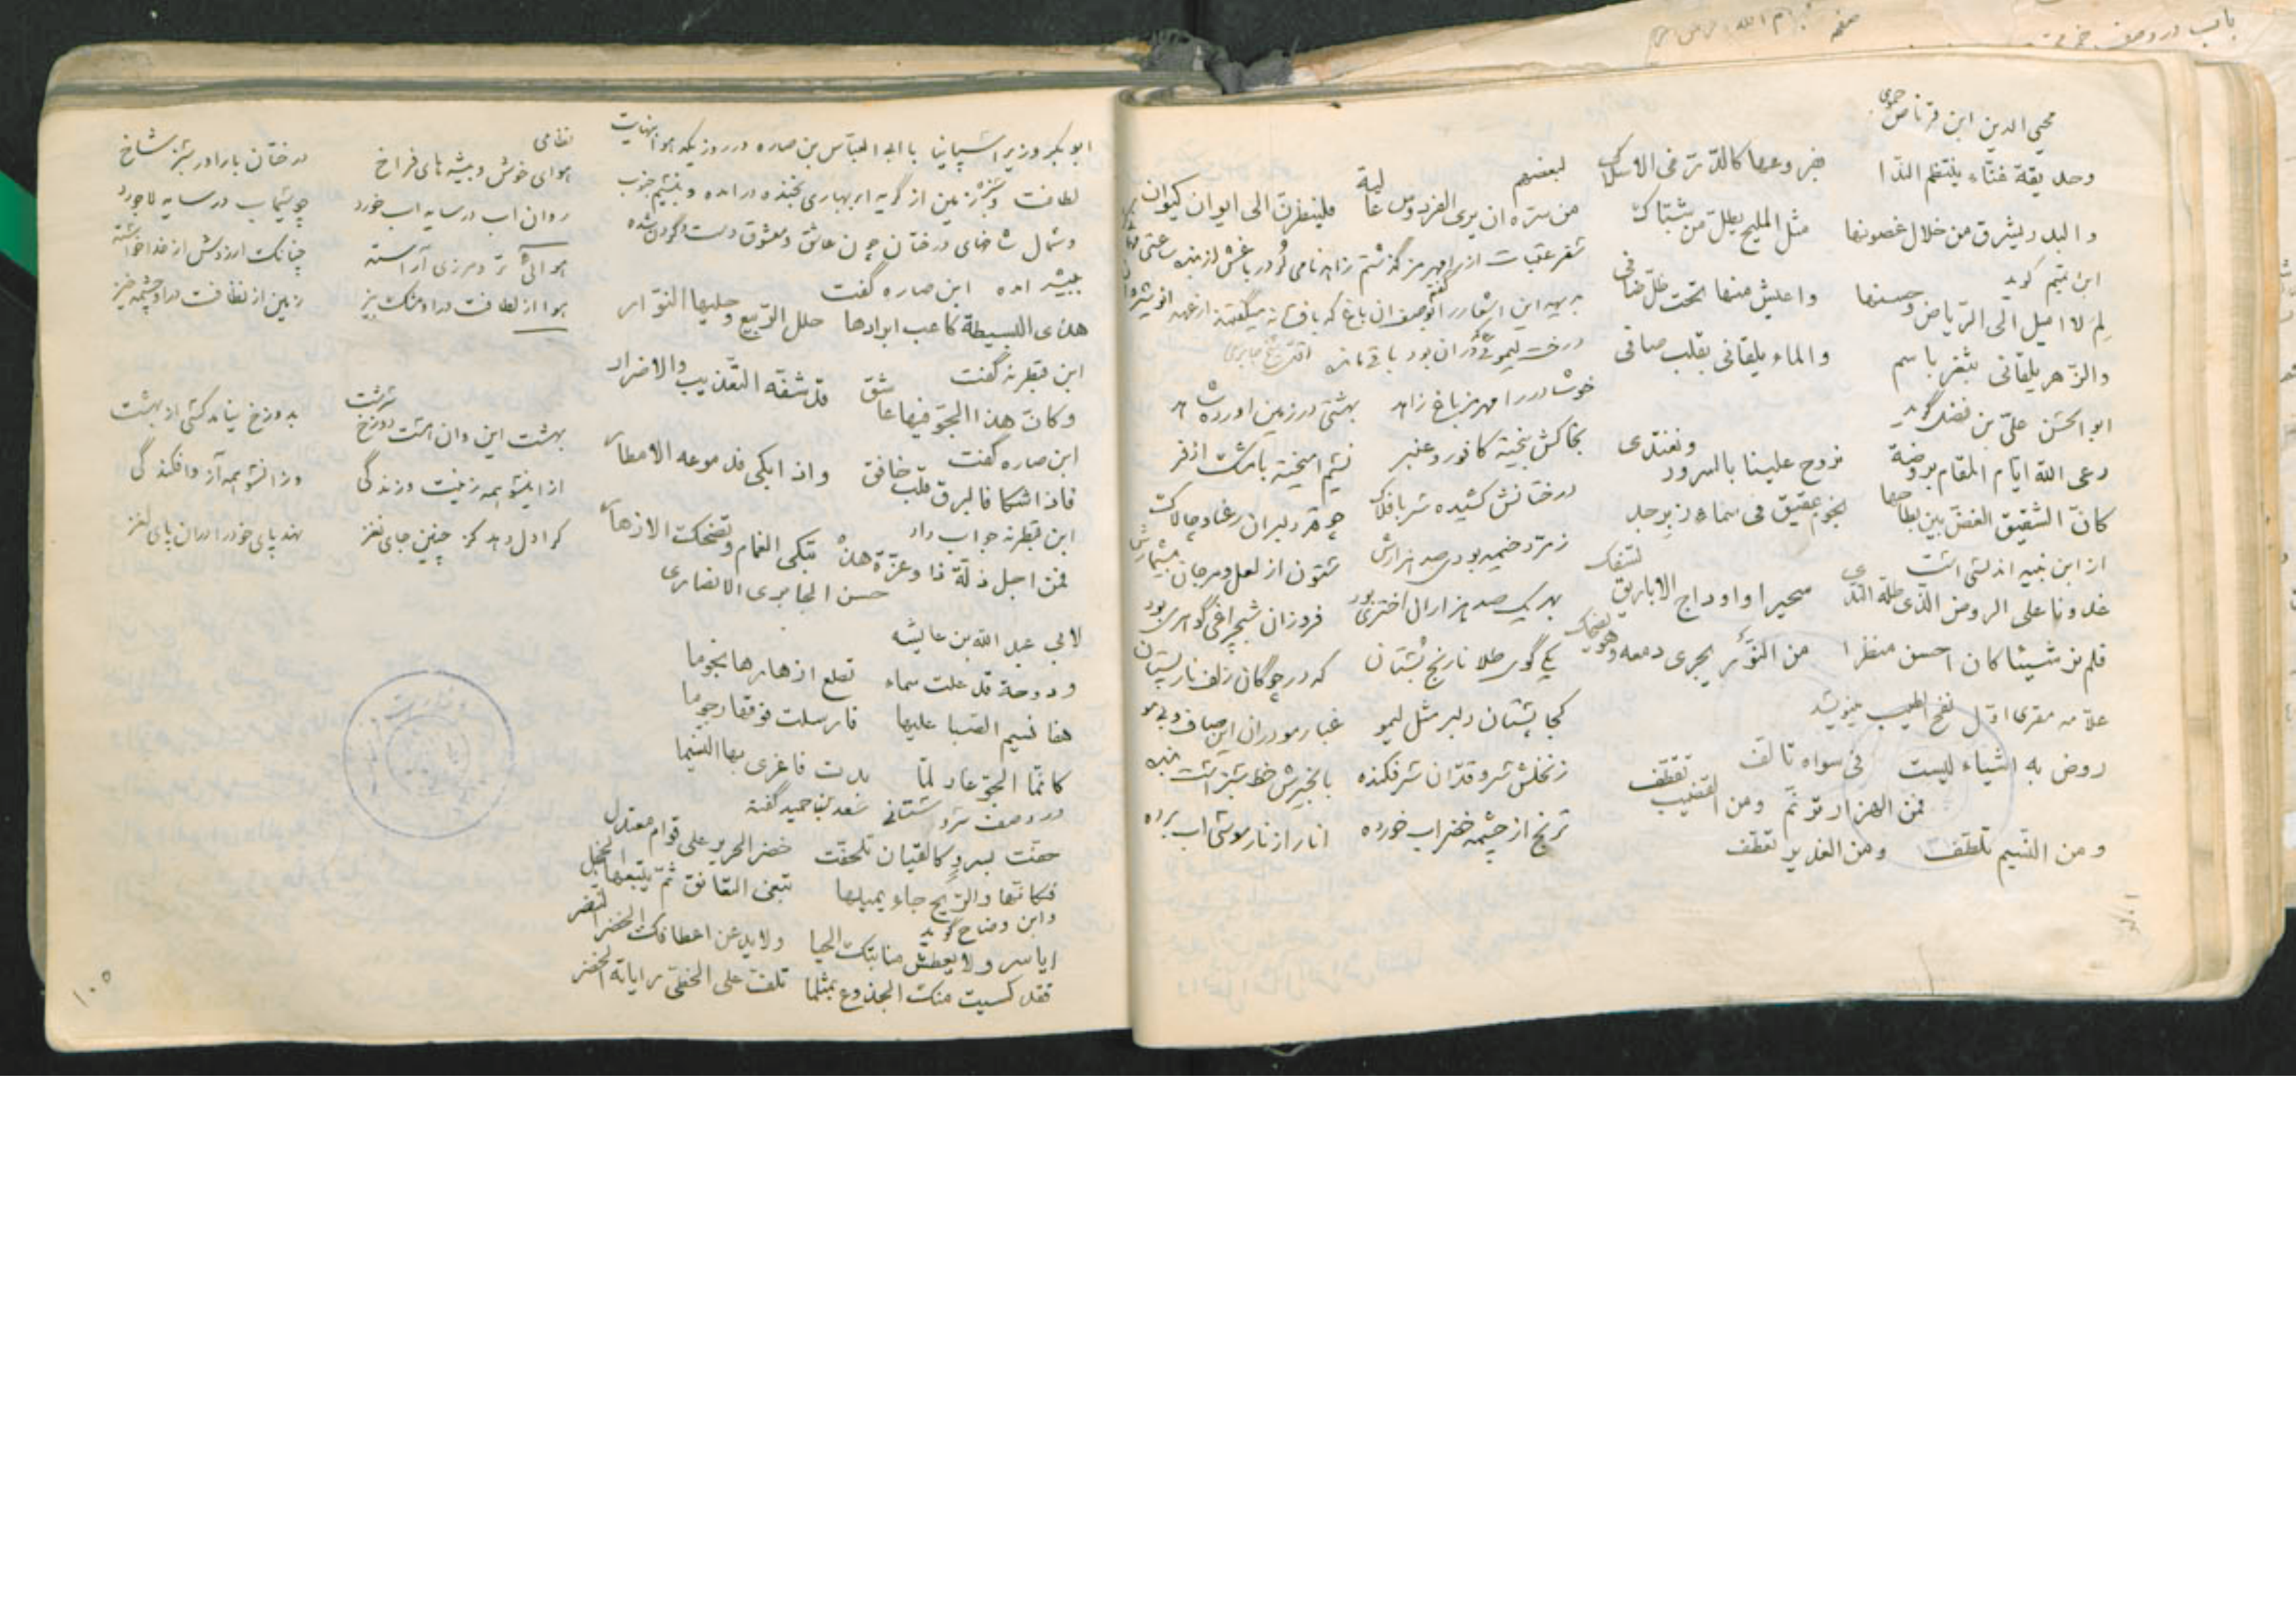 محیی الدین ابن قرناص حموی
وحدیقة غنّاء ینتظم النّدا
بفروعها کالدّرّ فی الاسلاک
والبدر یشرق من خلال غصونها
مثل الملیح یطلّ من شبّاک
ابن تمیم گوید
لِمَ لا امیل الی الریاض وحسنها
واعیش منها تحت ظلّ ضافی
والزّهر یلقانی بثغر باسم
والماء یلقانی بقلب صافی
ابو الحسن علیّ بن فضل گوید
رعی الله ایّام المقام بروضة
نروح علینا بالسرور ونغتدی
کانّ الشقیق الغضّ بین بطاحها
نجوم عقیق فی سماء زبرجد
از ابن نبیه اندلسی است
غدونا علی الروض الّذی طلّه النّدی
سحیرا واوداج الاباریق تسفک
فلم نر شیئا کان احسن منظرا
من النّور یجری دمعه وهو یضحک
علامه مقری اول نفح الطیب مینویسد
روض به اشیاء لیست
فی سواه تالف
فمن الهزار ترنّم
ومن القضیب تقطّف
ومن النّسیم تلطّف
ومن الغدیر تعطّف
لبعضهم
من سرّه ان یری الفردوس عالیة
فلینظرنّ الی ایوان کیوان
درخت لیموئی در آن بود باقی مانده
خوشا در رامهرمز باغ زاهد
بهشتی در زمین آورده شاهد
بخاکش بیخته کافور و عنبر
نسیم آمیخته با مشک اذفر
درختانش کشیده سر بافلاک
چو قد دلبران رعنا و چالاک
زمرد خیمه بودی صد هزارش
ستون از لعل و مرجان بیشمارش
بهر یک صد هزاران اختری بود
فروزان شبچراغی گوهری بود
یکی گوی طلا نارنج بستان
که در چوگان زلف نار پستان
کجا پستان دلبر مثل لیمو
زنخلش سرو قدان سر فکنده
ترنج از چشمه خضر آب خورده
ابو بکر وزیر اسپانیا با ابی العباس بن صاره در روزیکه هوا بنهایت
لطافت و سبزه زمین از گریه ابر بهاری بخنده درآمده و بنسیم جنوب
و شمال شاخهای درختان چون عاشق و معشوق دست و گردن شده
ببیشه آمده ابن صاره گفت
هذی البسیطة کاعب ابرادها
حلل الرّبیع وحلیها النّوّار
ابن قبطرنه گفت
وکانّ هذا الجوّ فیها عاشق
قد شفّه التعذیب والاضرار
ابن صاره گفت
فاذا شکا فالبرق قلب خافق
واذا بکی فدموعه الامطار
ابن قبطرنه جواب داد
فمن اجل ذلّة ذا وعزّة هذه
یبکی الغمام وتضحک الازهار
حسن الجابری الانصاری
لابی عبد الله بن عایشه
ودوحة قد علت سماء
تطلع ازهارها نجوما
هفا نسیم الصّبا علیها
فارسلت فوقنا رجوما
کانّما الجوّ غار لمّا
بدت فاغری بها النسیما
در وصف سروستانی سعد بن حمید گفته
حفّت بسرو کالقیان تلحفت
خضر الحریر علی قوام معتدل
فکانّها والرّیح جاء یمیلها
تبغی التعانق ثمّ یمنعها الخجل
وابن وضاح گوید
ایا سرو لا یعطش منابتک الحیا
ولا یدعن اعطافک الخضر النضر
فقد کسیت منک الجذوع بمثلما
تلفّ علی الخطّی رایاته الخضر
نظامی
هوای خوش و بیشه های فراخ
درختان بارآور سبز شاخ
روان آب در سایه آب خورد
چو سیماب در سایه لاجورد
چنانک آرزویش از خدا خواسته
هوا از لطافت در او مشک بیز
زمین از نظافت در او چشمه خیز
بهشت این و آن هست دوزخ سرشت
بدوزخ نیاید کسی از بهشت
از اینسو همه زینت و زندگی
وز آنسو همه آز و افکندگی
کرا دل دهد کز چنین جای نغز
نهد پای خود را در آن پای لغز
۱۰۵